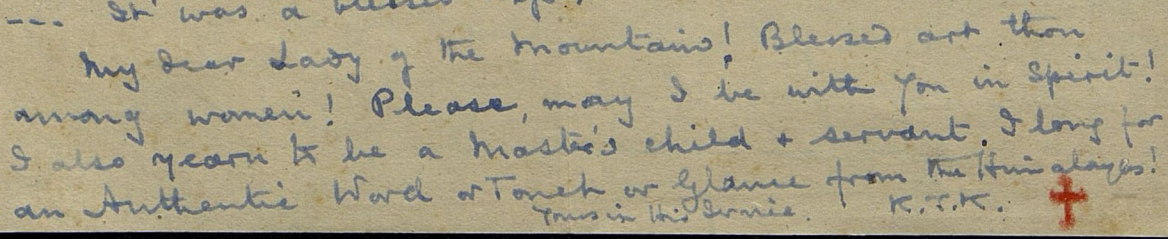 --- It was a blessed
My dear Lady of the Mountains! Blessed art thou
among women! Please, may I be with you in Spirit!
I also yearn to be a Master's child + servant. I long for
an Authentic Word or Touch or Glance from the Himalayas!
Yours in His Service. K.T.K.